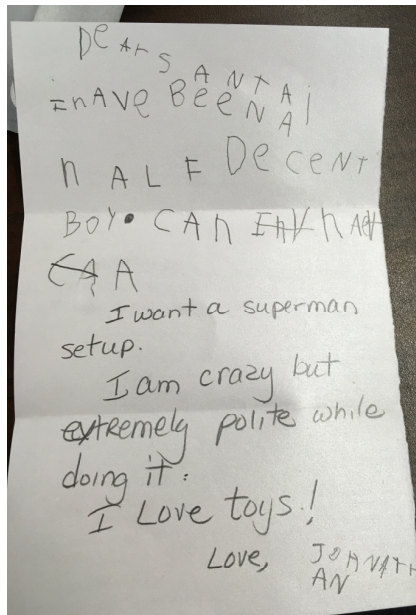 DeAr SANTA i
inAVe BeeN A
n A L F DeCeNT
BOY. CAn
CAA
I want a superman
setup.
I am crazy but
extremely polite while
doing it.
I Love toys!
Love, JOHNATH
AN